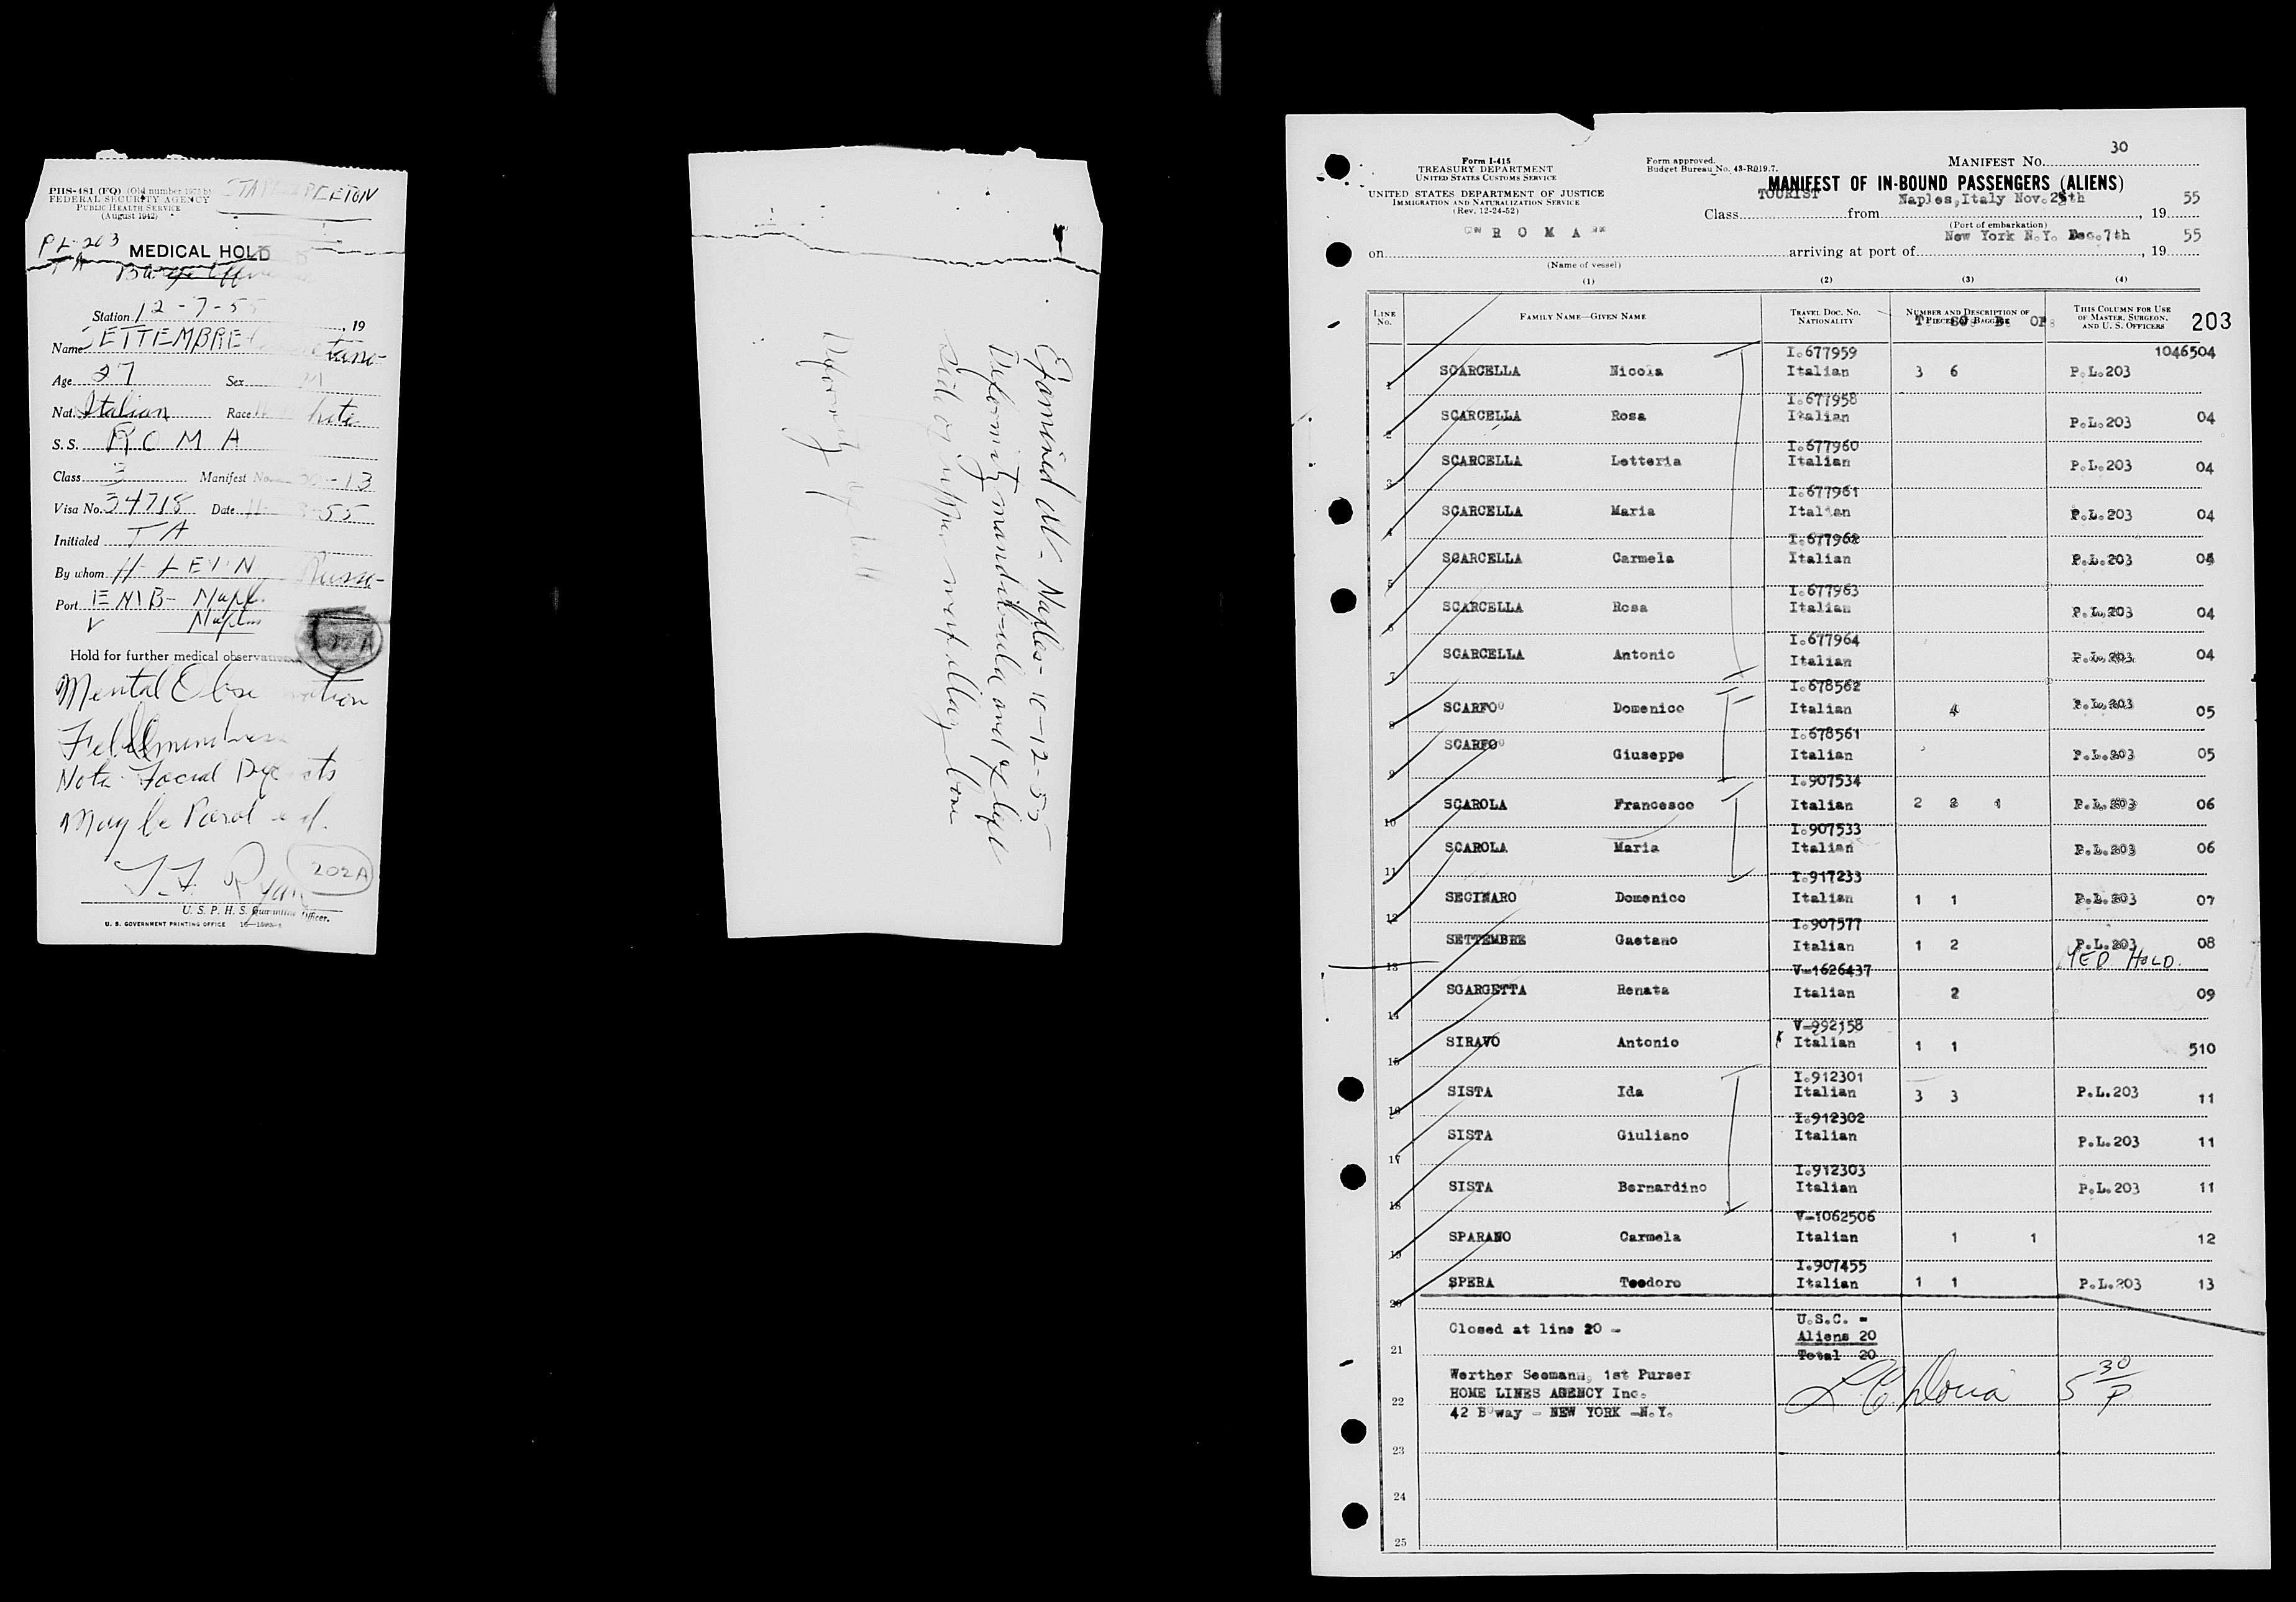 PHS-481 (FQ) (Old number 1975-b)
FEDERAL SECURITY AGENCY
PUBLIC HEALTH SERVICE
(August 1942)
PL-203
MEDICAL HOLD
TA
Station 12-7-55, 19
Name SETTEMBRE
Age 27 Sex M
Nat. Italian Race White
S.S. ROMA
Class 3 Manifest No. 30-13
Visa No. 34718 Date 55
Initialed TA
By whom H LEVIN Russo
Port
Naples
Hold for further medical observation
Mental Observation
Feeblemindness
Note Facial Defects
May be Paroled.
T.F. Ryan
202A
U. S. P. H. S. Quarantine Officer.
U. S. GOVERNMENT PRINTING OFFICE
Examined at Naples 10-12-55
Deformity mandibula and of left
side of upper maxillary bone
Deformity of
Form I-415
TREASURY DEPARTMENT
UNITED STATES CUSTOMS SERVICE
UNITED STATES DEPARTMENT OF JUSTICE
IMMIGRATION AND NATURALIZATION SERVICE
(Rev. 12-24-52)
Form approved.
Budget Bureau No. 43-R019.7.
MANIFEST No. 30
MANIFEST OF IN-BOUND PASSENGERS (ALIENS)
Class TOURIST from Naples,Italy Nov. 25th, 19 55
(Port of embarkation)
on "ROMA" arriving at port of New York N.Y. Dec.7th, 19 55
(Name of vessel)
(1) (2) (3) (4)
LINE No. FAMILY NAME—GIVEN NAME TRAVEL DOC. NO. NATIONALITY NUMBER AND DESCRIPTION OF PIECES OF BAGGAGE THIS COLUMN FOR USE OF MASTER, SURGEON, AND U. S. OFFICERS 203
I.677959 1046504
1 SCARCELLA Nicola Italian 3 6 P.L.203
I.677958
2 SCARCELLA Rosa Italian P.L.203 04
I.677960
3 SCARCELLA Letteria Italian P.L.203 04
I.677961
4 SCARCELLA Maria Italian P.L.203 04
I.677962
5 SCARCELLA Carmela Italian P.L.203 04
I.677963
6 SCARCELLA Rosa Italian P.L.203 04
I.677964
7 SCARCELLA Antonio Italian P.L.203 04
I.678562
8 SCARFO' Domenico Italian 4 P.L.203 05
I.678561
9 SCARFO' Giuseppe Italian P.L.203 05
I.907534
10 SCAROLA Francesco Italian 2 2 1 P.L.203 06
I.907533
11 SCAROLA Maria Italian P.L.203 06
I.917233
12 SEGINARO Domenico Italian 1 1 P.L.203 07
I.907577
13 SETTEMBRE Gaetano Italian 1 2 P.L.203 08
MED HOLD.
V-1626437
14 SGARGETTA Renata Italian 2 09
V-992158
15 SIRAVO Antonio Italian 1 1 510
I.912301
16 SISTA Ida Italian 3 3 P.L.203 11
I.912302
17 SISTA Giuliano Italian P.L.203 11
I.912303
18 SISTA Bernardino Italian P.L.203 11
V-1062506
19 SPARANO Carmela Italian 1 1 12
I.907455
20 SPERA Teodoro Italian 1 1 P.L.203 13
Closed at line 20 -
U.S.C. -
Aliens 20
21 Total 20
Werther Seemann, 1st Purser
HOME LINES AGENCY Inc.
22 42 B'way - NEW YORK -N.Y.
5 30 P
23
24
25